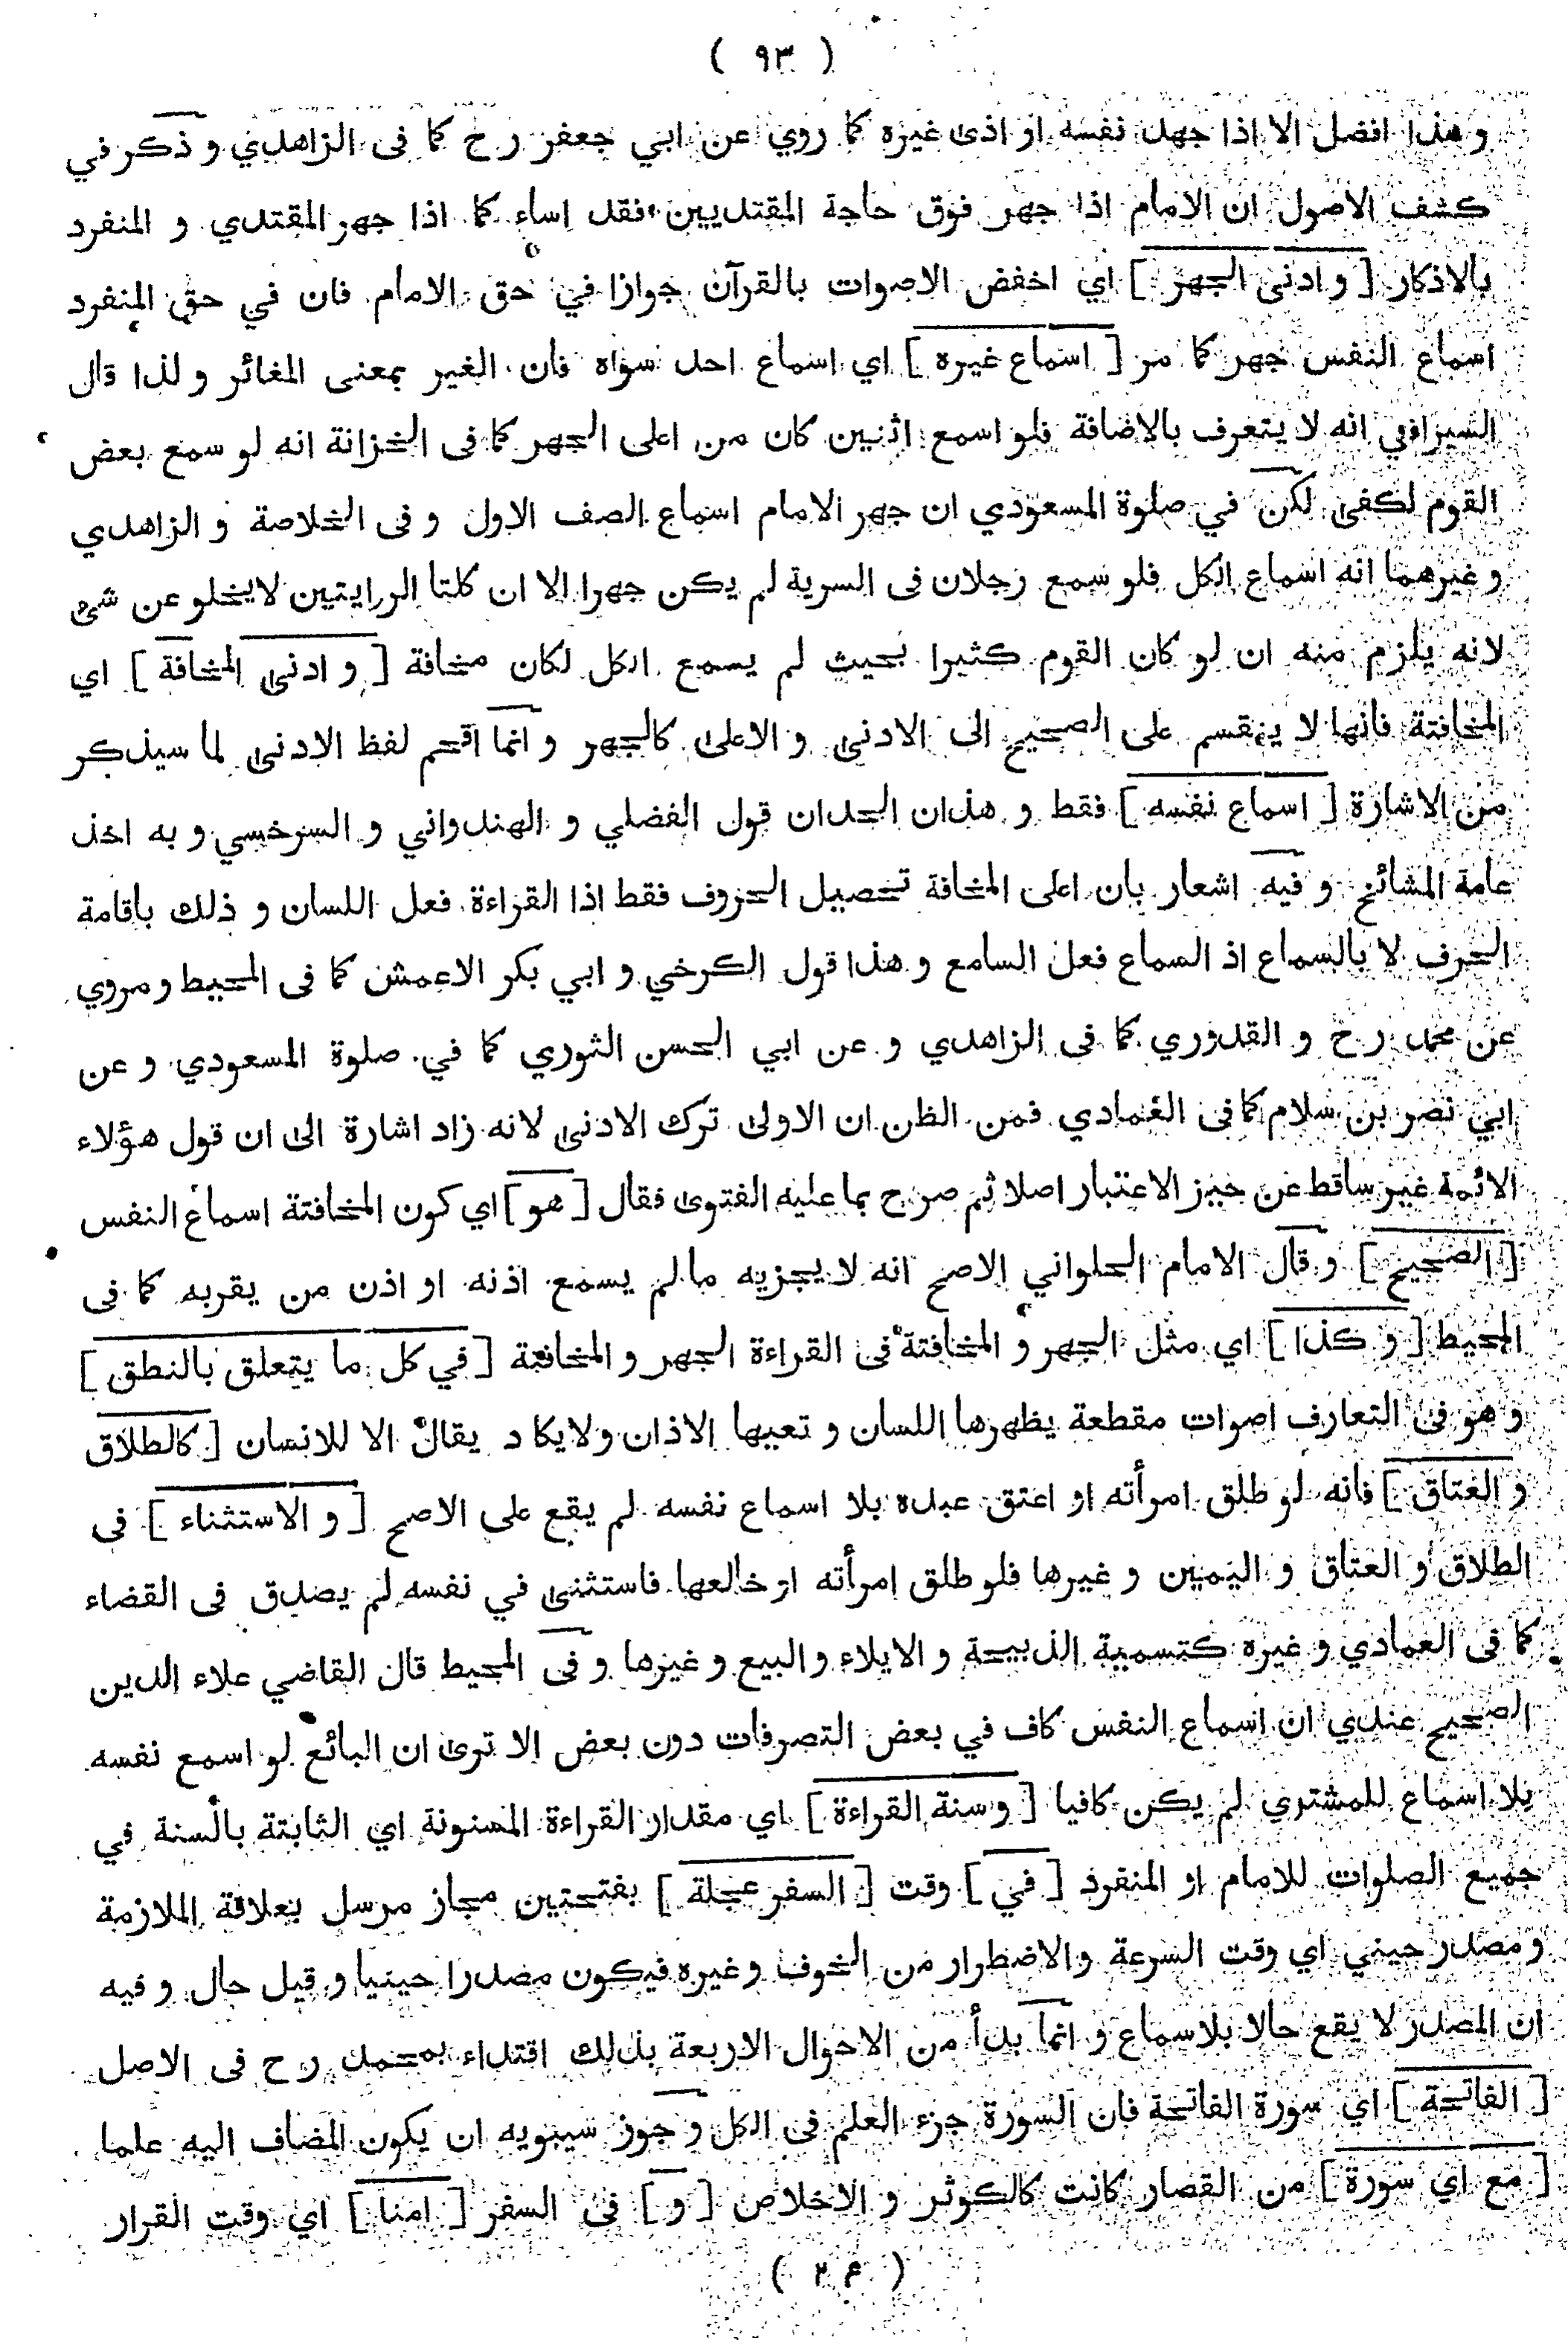 ( ٩٣ )
و هذا افضل الا اذا جهد نفسه او اذى غيره كما روي عن ابي جعفر رح كما فى الزاهدي و ذكر في
كشف الاصول ان الامام اذا جهر فوق حاجة المقتديين فقد اساء كما اذا جهر المقتدي و المنفرد
بالاذكار [ و ادنى الجهر ] اي اخفض الاصوات بالقرآن جوازا في حق الامام فان في حق المنفرد
اسماع النفس جهر كما مر [ اسماع غيره ] اي اسماع احد سواه فان الغير بمعنى المغائر و لذا قال
السيرافي انه لا يتعرف بالاضافة فلو اسمع اثنين كان من اعلى الجهر كما فى الخزانة انه لو سمع بعض
القوم لكفى لكن في صلوة المسعودي ان جهر الامام اسماع الصف الاول و فى الخلاصة و الزاهدي
و غيرهما انه اسماع الكل فلو سمع رجلان فى السرية لم يكن جهرا الا ان كلتا الروايتين لا يخلو عن شئ
لانه يلزم منه ان لو كان القوم كثيرا بحيث لم يسمع الكل لكان مخافة [ و ادنى المخافة ] اي
المخافتة فانها لا ينقسم على الصحيح الى الادنى و الاعلى كالجهر و انما اقحم لفظ الادنى لما سيذكر
من الاشارة [ اسماع نفسه ] فقط و هذان الحدان قول الفضلي و الهندواني و السرخسي و به اخذ
عامة المشائخ و فيه اشعار بان اعلى المخافة تحصيل الحروف فقط اذا القراءة فعل اللسان و ذلك باقامة
الحرف لا بالسماع اذ السماع فعل السامع و هذا قول الكرخي و ابي بكر الاعمش كما فى المحيط و مروي
عن محمد رح و القدوري كما فى الزاهدي و عن ابي الحسن الثوري كما في صلوة المسعودي و عن
ابي نصر بن سلام كما فى العمادي فمن الظن ان الاولى ترك الادنى لانه زاد اشارة الى ان قول هؤلاء
الائمة غير ساقط عن حيز الاعتبار اصلا ثم صرح بما عليه الفتوى فقال [ هو ] اي كون المخافتة اسماع النفس
[ الصحيح ] و قال الامام الحلواني الاصح انه لا يجزيه ما لم يسمع اذنه او اذن من يقربه كما فى
المحيط [ و كذا ] اي مثل الجهر و المخافتة فى القراءة الجهر و المخافتة [ في كل ما يتعلق بالنطق ]
و هو فى التعارف اصوات مقطعة يظهرها اللسان و تعيها الاذان و لا يكاد يقال الا للانسان [ كالطلاق
و العتاق ] فانه لو طلق امرأته او اعتق عبده بلا اسماع نفسه لم يقع على الاصح [ و الاستثناء ] فى
الطلاق و العتاق و اليمين و غيرها فلو طلق امرأته او خالعها فاستثنى في نفسه لم يصدق فى القضاء
كما فى العمادي و غيره كتسمية الذبيحة و الايلاء و البيع و غيرها و فى المحيط قال القاضي علاء الدين
الصحيح عندي ان اسماع النفس كاف في بعض التصرفات دون بعض الا ترى ان البائع لو اسمع نفسه
بلا اسماع للمشتري لم يكن كافيا [ و سنة القراءة ] اي مقدار القراءة المسنونة اي الثابتة بالسنة في
جميع الصلوات للامام او المنفرد [ في ] وقت [ السفر عجلة ] بفتحتين مجاز مرسل بعلاقة الملازمة
و مصدر حيني اي وقت السرعة والاضطرار من الخوف و غيره فيكون مصدرا حينيا و قيل حال و فيه
ان المصدر لا يقع حالا بلا سماع و انما بدأ من الاحوال الاربعة بذلك اقتداء بمحمد رح فى الاصل
[ الفاتحة ] اي سورة الفاتحة فان السورة جزء العلم فى الكل و جوز سيبويه ان يكون المضاف اليه علما
[ مع اي سورة ] من القصار كانت كالكوثر و الاخلاص [ و ] فى السفر [ امنا ] اي وقت القرار